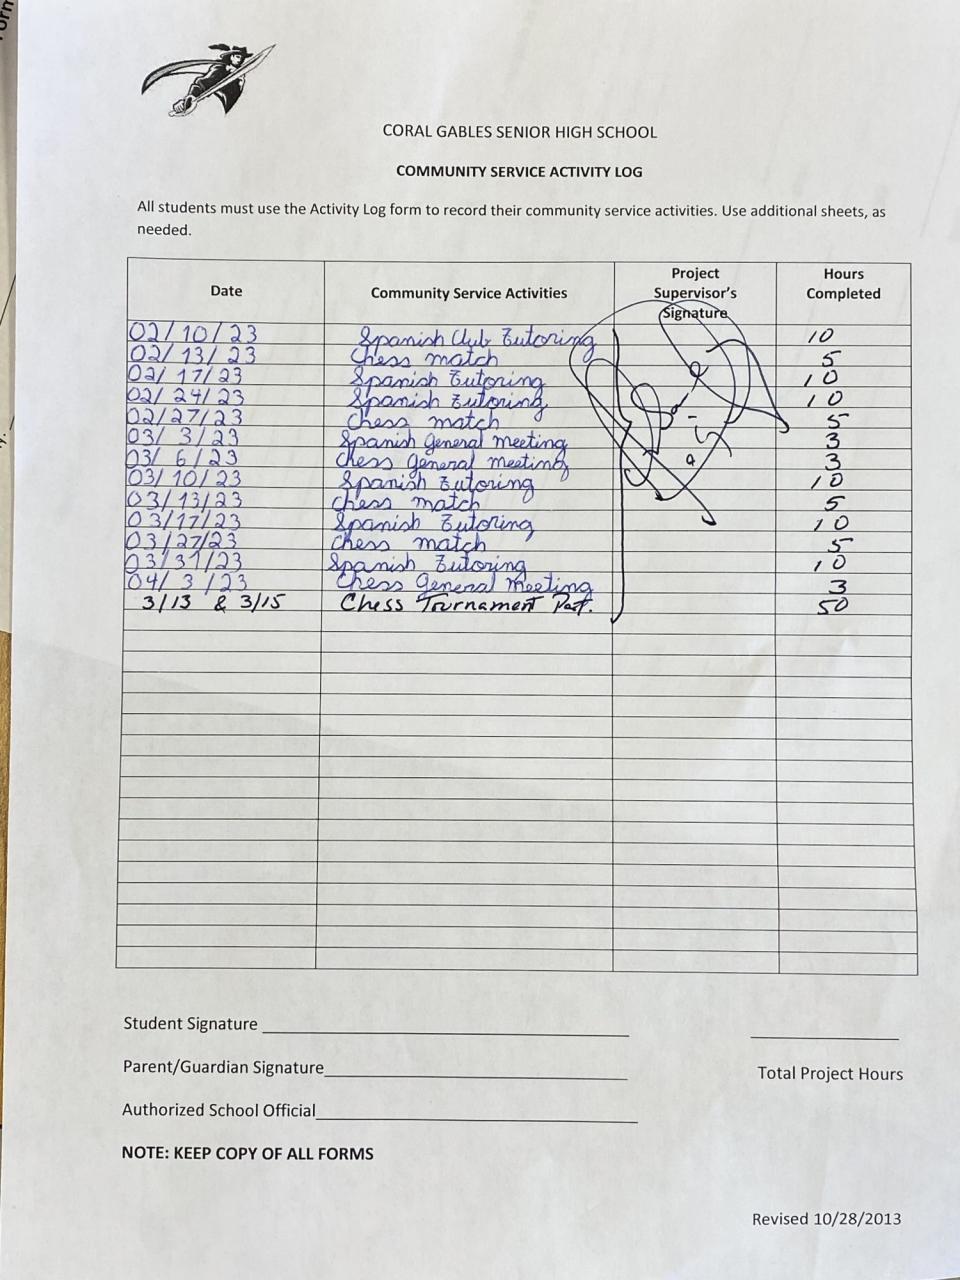 CORAL GABLES SENIOR HIGH SCHOOL
COMMUNITY SERVICE ACTIVITY LOG
All students must use the Activity Log form to record their community service activities. Use additional sheets, as
needed.
Date Community Service Activities Project Supervisor's Signature Hours Completed
02/10/23 Spanish Club Tutoring 10
02/13/23 Chess match 5
02/17/23 Spanish Tutoring 10
02/24/23 Spanish Tutoring 10
02/27/23 Chess match 5
03/3/23 Spanish General Meeting 3
03/6/23 Chess General meeting 3
03/10/23 Spanish Tutoring 10
03/13/23 Chess match 5
03/17/23 Spanish Tutoring 10
03/27/23 Chess match 5
03/31/23 Spanish Tutoring 10
04/3/23 Chess General Meeting 3
3/13 & 3/15 Chess Tournament 50
Student Signature
Parent/Guardian Signature
Total Project Hours
Authorized School Official
NOTE: KEEP COPY OF ALL FORMS
Revised 10/28/2013